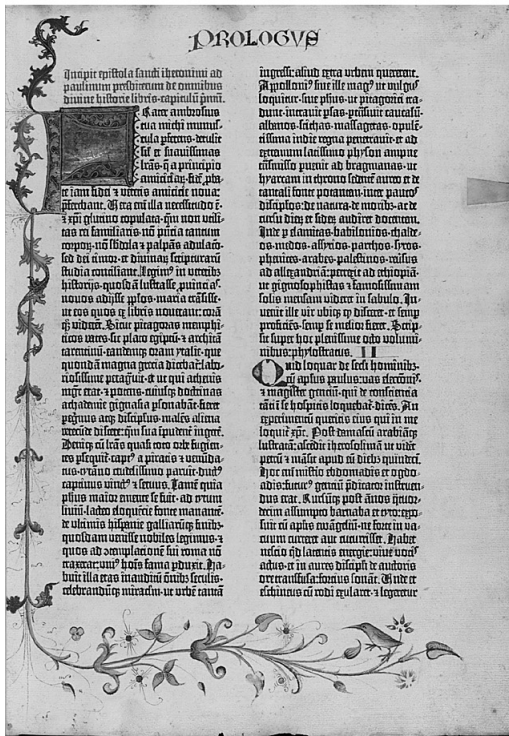 PROLOGVS
Incipit epistola sancti iheronimi ad
paulinum presbiterum de omnibus
divine historie libris. capitulū primū.
Frater ambrosius
tua michi munus-
cula pferens. detulit
sil et suavissimas
lrās. q̄ a principio
amiciciaȝ. fidē pbate
iam fidei ⁊ veteris amicicie nova:
pferebant. Vera em̄ illa necessitudo ē.
⁊ xp̄i glutino copulata. qm̄ non utili-
tas rei familiaris. nō pn̄cia tantum
corpoȝ. nō sbdola ⁊ palpās adulacō.
sed dei timor. et divinaȝ scripturarū
studia conciliant. Legimꝰ in veteribꝫ
historijs. quosdā lustrasse pvincias.
novos adijsse pp̄los. maria trāsisse.
ut eos quos ex libris noverant: corā
qȝ viderēt. Sicut pitagoras memphi-
ticos vates. sic plato egiptū. ⁊ architā
tarentinū. eandemqȝ oram ytalie. que
quondā magna grecia dicebat: labo-
riosissime peragravit. et ut qui athenis
mgr̄ erat. ⁊ potens. cuiusqȝ doctrinas
achademie gignasia psonabāt. fieret
pegrinus atqȝ discipulus. malēs aliena
verecunde discere: qm̄ sua īpudent̄ ingere.
Deniqȝ cū lrās quasi toto orbe fugien-
tes psequit̄. captꝰ a piratis ⁊ venunda-
tus. tyrāno crudelissimo paruit. ductꝰ
captivus vinctꝰ ⁊ servus. Tamē quia
phus maior emente se fuit. ad tytum
livium. lacteo eloquencie fonte manantē.
de ultimis hispanie galliarumqȝ finibꝫ.
quosdam venisse nobiles legimus. ⁊
quos ad 9templacionē sui roma nō
traxerat: unꝰ hoīs fama pduxit. Ha-
buit illa etas inauditū om̄ibꝫ seculis.
celebrandūqȝ miraculū. ut urbē tantā
ingressi: aliud extra urbem quererent.
Apollonius sive ille magꝰ ut vulgus
loquitur. sive phus. ut pitagorici tra-
dunt. intravit psas. ptrāsivit caucasū.
albanos. scithas. massagetas. opulē-
tissima indie regna penetravit. et ad
extremum latissimo physon amne
trāsmisso puenit ad bragmanas. ut
hyarcam in throno sedentē aureo et de
tantali fonte potantem. inter paucos
discipulos. de natura. de moribꝫ. ac de
cursu dierū et siderū audiret docentem.
Inde p elamitas. babilonios. chalde-
os. medos. assyrios. parthos. syros.
phenices. arabes. palestinos. reversus
ad allexandriā: perrexit ad ethiopiā.
ut gignosophistas ⁊ famosissimam
solis mensam videret in sabulo. In-
venit ille vir ubiqȝ qd̄ disceret. et semp
proficiēs. semp se melior fieret. Scrip-
sit super hoc plenissime octo volumi-
nibus: phylostratus. II
Quid loquar de secli hominibꝫ.
cū apl̄us paulus: vas electōnis.
⁊ magister genciū. qui de consciencia
tāti ī se hospicis loquebat̄. dices. An
experimentū queritis eius qui in me
loquit̄ xp̄c. Post damascū arabiāqȝ
lustratā: ascēdit iherosolimā ut videt
petrū ⁊ māsit apud eū diebꝫ quindecī.
Hoc em̄ misterio ebdomadis et ogdo-
adis: futurꝰ genciū pdicator instruen-
dus erat. Rursūqȝ post ānos q̄tuor-
decim assumpto barnaba et tyto: expo-
suit cū apl̄is evangeliū. ne forte in va-
cuum curreret aut cucurrisset. Habet
nescio qd̄ latentis energie: vive vocis
actus. et in aures discipli de auctoris
ore transfusa: forcius sonat. Unde et
eschineus cū rodi exularet. ⁊ legeretur